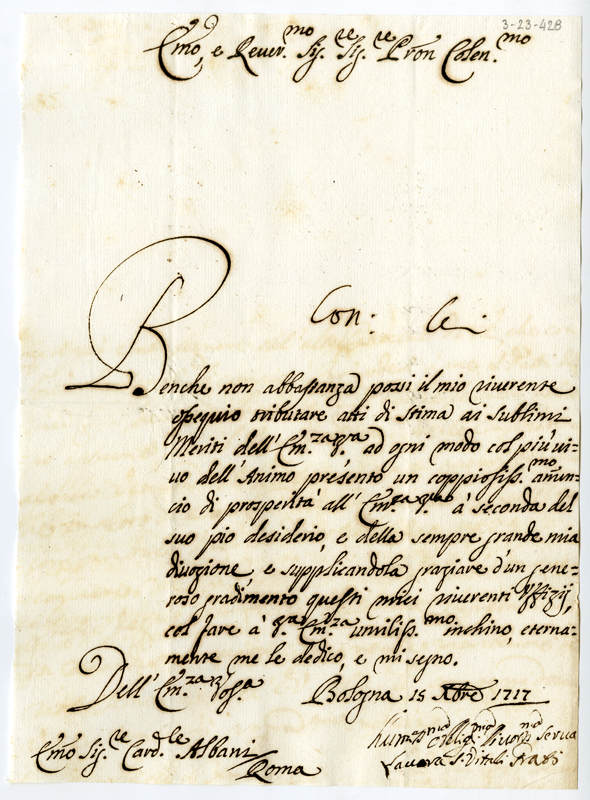 3-23-428
Emo, e Rever.mo Sig.re Sig.re Pron Colen.mo
Con: Ce.
Benche non abbastanza possi il mio riverente
ossequio tributare atti di stima ai sublimi
Meriti dell' Em.za V.ra ad ogni modo col più vi-
vo dell' Animo presento un coppiosiss.mo annun-
cio di prosperità all' Em.za V.ra à seconda del
suo pio desiderio, e della sempre grande mia
divozione, e supplicandola graziare d'un gene-
roso gradimento questi miei riverenti Uffizij,
col fare à V.ra Em.za umiliss.mo inchino, eterna-
mente me le dedico, e mi segno.
Dell' Em.za Vos.a
Bologna 15 Xbre 1717
Emo Sig.re Card.le Albani
Roma
Hum.ma Oblig.ma Serva
S. Vitali